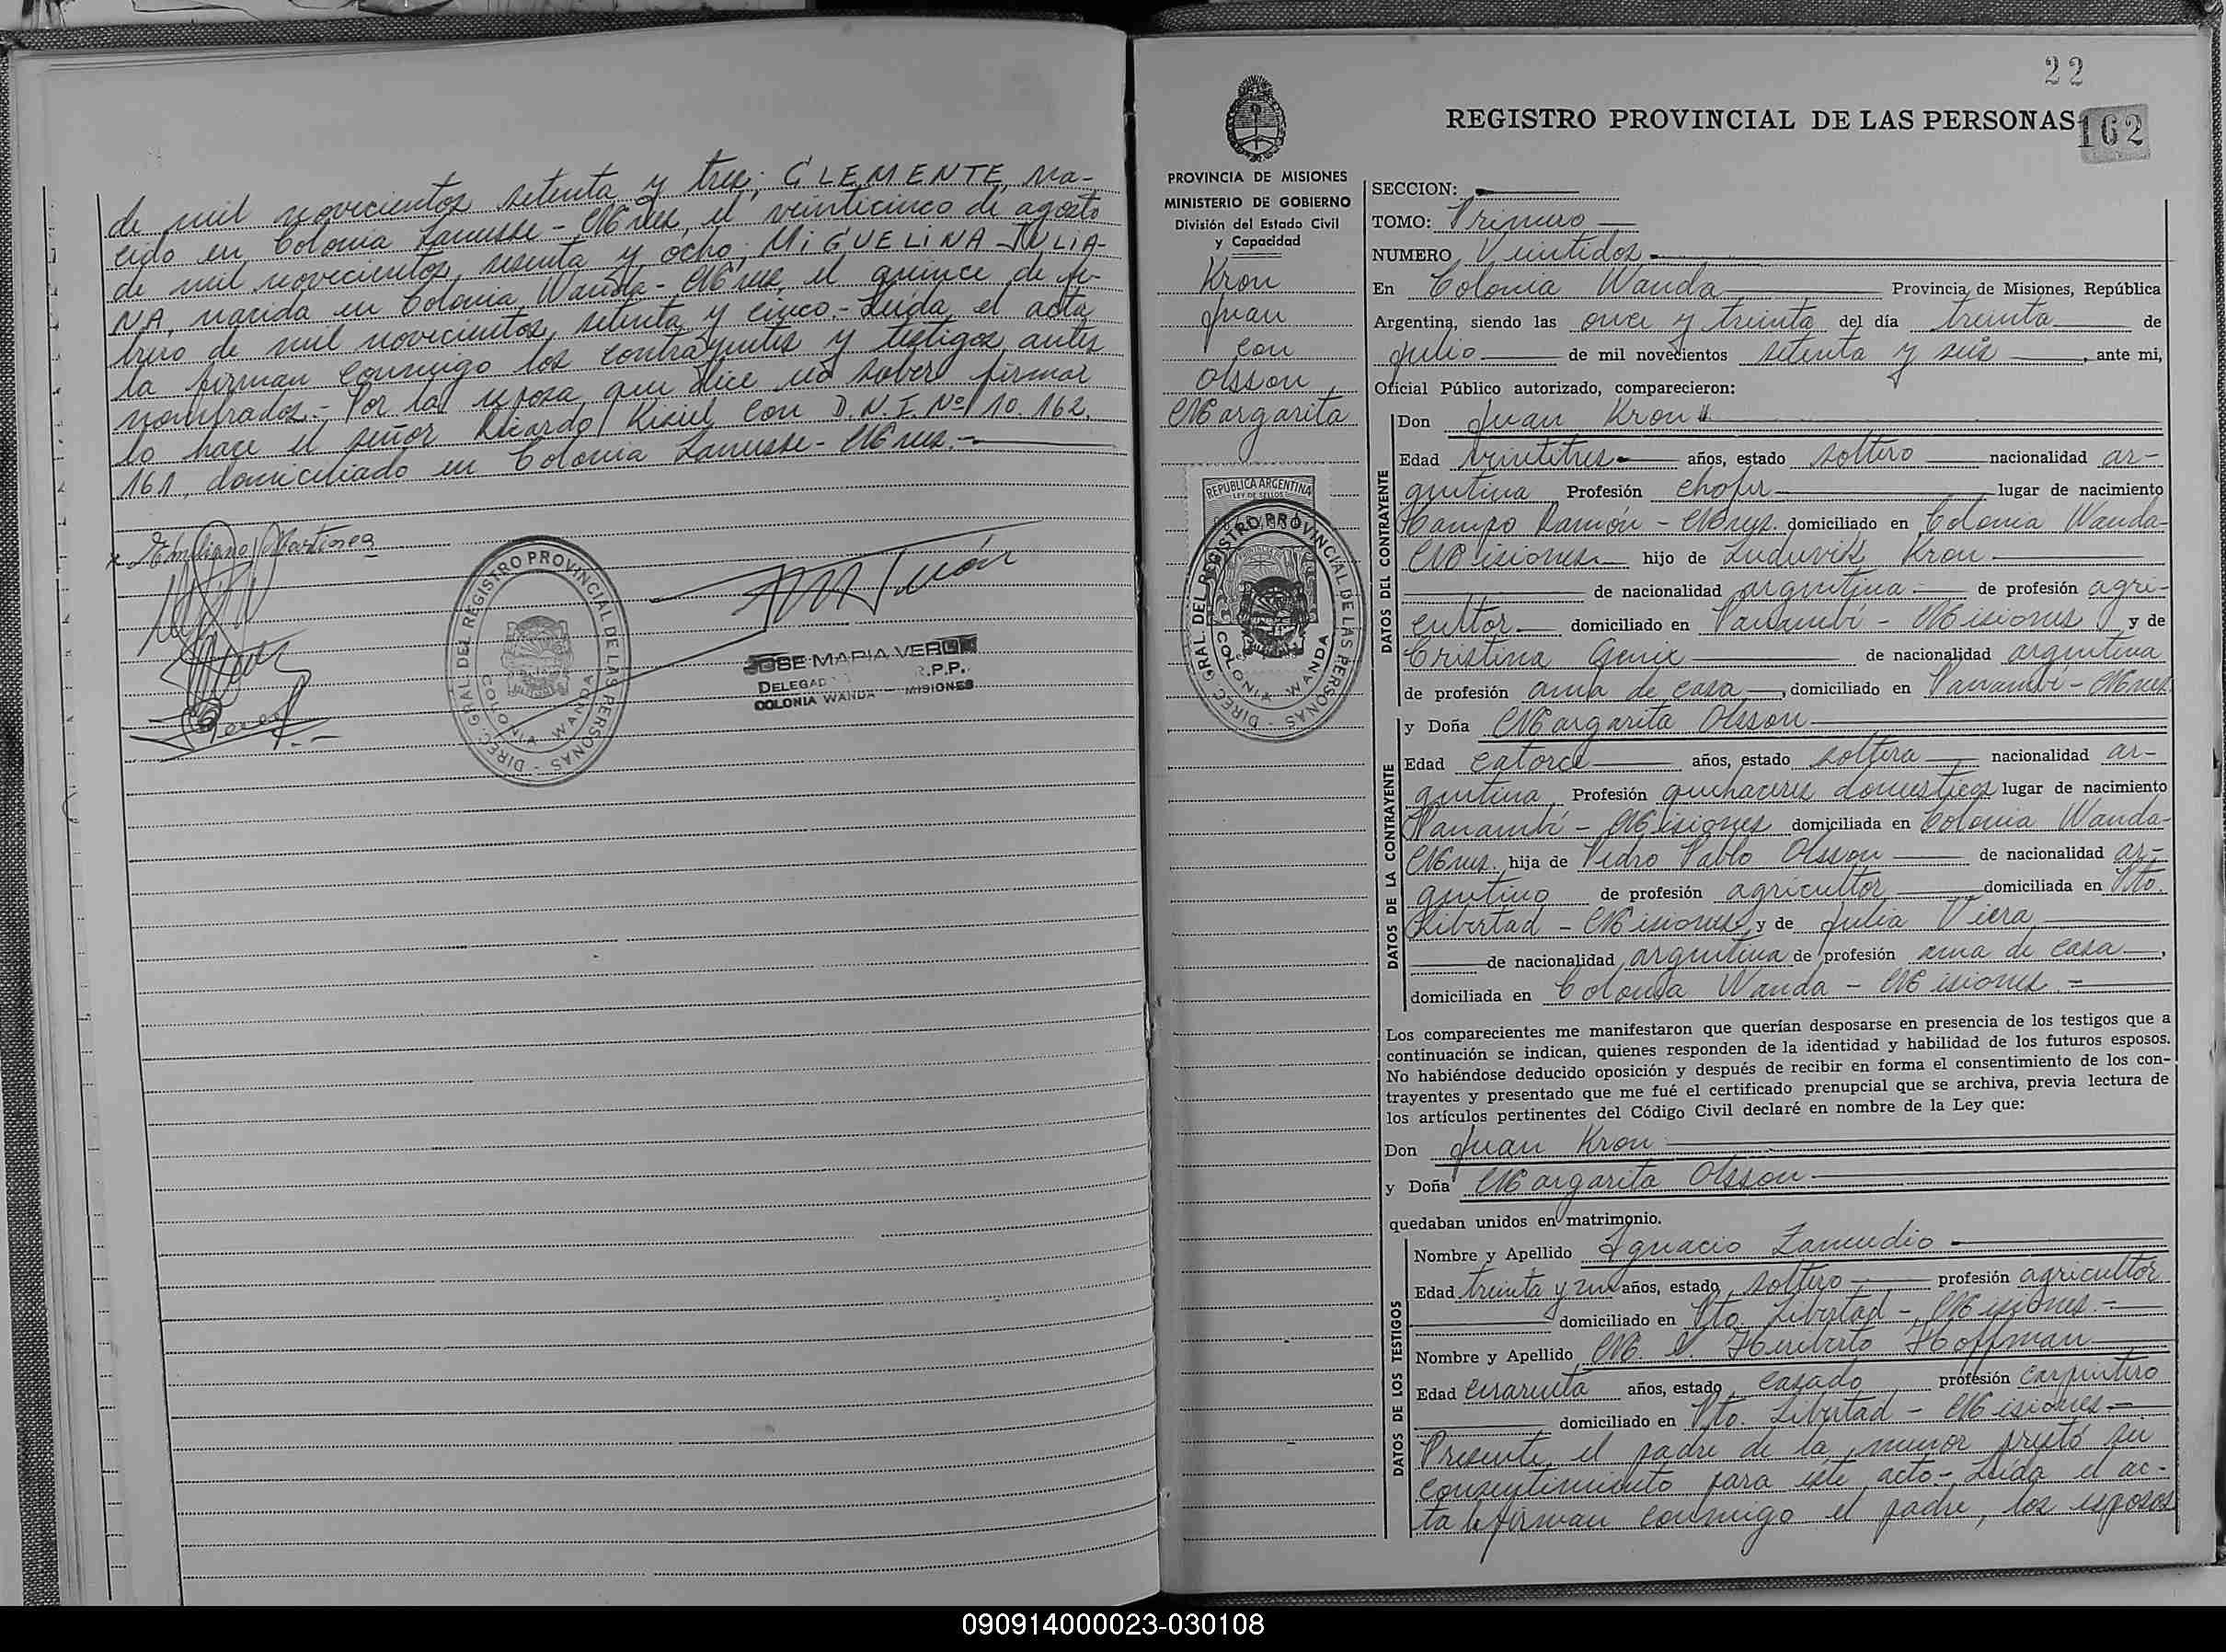 de mil novecientos setenta y tres; CLEMENTE, na-
cido en Colonia Lanusse - Mnes, el veinticinco de agosto
de mil novecientos sesenta y ocho; MIGUELINA JULIA-
NA, nacida en Colonia Wanda - Mnes, el quince de fe-
brero de mil novecientos setenta y cinco.- Leída el acta
la firman conmigo los contrayentes y testigos antes
nombrados.- Por la esposa que dice no saber firmar
lo hace el señor Ricardo Kisiel con D.N.I. Nº 10.162.
161, domiciliado en Colonia Lanusse - Mnes.-
x Emiliano Martinez
DIREC. GRAL. DEL REGISTRO PROVINCIAL DE LAS PERSONAS
COLONIA WANDA
JOSE MARIA VERON
DELEGAD R.P.P.
COLONIA WANDA - MISIONES
22
REGISTRO PROVINCIAL DE LAS PERSONAS
162
PROVINCIA DE MISIONES
MINISTERIO DE GOBIERNO
División del Estado Civil
y Capacidad
Kron
Juan
con
Olsson,
Margarita
REPUBLICA ARGENTINA
LEY DE SELLOS
DIREC. GRAL. DEL REGISTRO PROVINCIAL DE LAS PERSONAS
COLONIA WANDA
SECCION:
TOMO: Primero
NUMERO Veintidos
En Colonia Wanda Provincia de Misiones, República
Argentina, siendo las once y treinta del día treinta de
julio de mil novecientos setenta y seis, ante mi,
Oficial Público autorizado, comparecieron:
DATOS DEL CONTRAYENTE
Don Juan Kron
Edad veintitres años, estado soltero nacionalidad ar-
gentina Profesión chofer lugar de nacimiento
Campo Ramón - Mnes. domiciliado en Colonia Wanda-
Misiones hijo de Luduvik Kron
de nacionalidad argentina de profesión agri-
cultor domiciliado en Panambí - Misiones y de
Cristina Genix de nacionalidad argentina
de profesión ama de casa, domiciliado en Panambí - Mnes.
DATOS DE LA CONTRAYENTE
y Doña Margarita Olsson
Edad catorce años, estado soltera nacionalidad ar-
gentina Profesión quehaceres domesticos lugar de nacimiento
Panambí - Misiones domiciliada en Colonia Wanda-
Mnes. hija de Pedro Pablo Olsson de nacionalidad ar-
gentino de profesión agricultor domiciliada en Pto.
Libertad - Misiones y de Julia Viera
de nacionalidad argentina de profesión ama de casa,
domiciliada en Colonia Wanda - Misiones.-
Los comparecientes me manifestaron que querían desposarse en presencia de los testigos que a
continuación se indican, quienes responden de la identidad y habilidad de los futuros esposos.
No habiéndose deducido oposición y después de recibir en forma el consentimiento de los con-
trayentes y presentado que me fué el certificado prenupcial que se archiva, previa lectura de
los artículos pertinentes del Código Civil declaré en nombre de la Ley que:
Don Juan Kron
y Doña Margarita Olsson
quedaban unidos en matrimonio.
DATOS DE LOS TESTIGOS
Nombre y Apellido Ignacio Zamudio
Edad treinta y un años, estado soltero profesión agricultor
domiciliado en Pto. Libertad - Misiones.-
Nombre y Apellido Heriberto Hoffman
Edad cuarenta años, estado casado profesión carpintero
domiciliado en Pto. Libertad - Misiones-
Presente el padre de la menor prestó su
consentimiento para este acto.- Leída el ac-
ta la firman conmigo el padre, los esposos
090914000023-030108